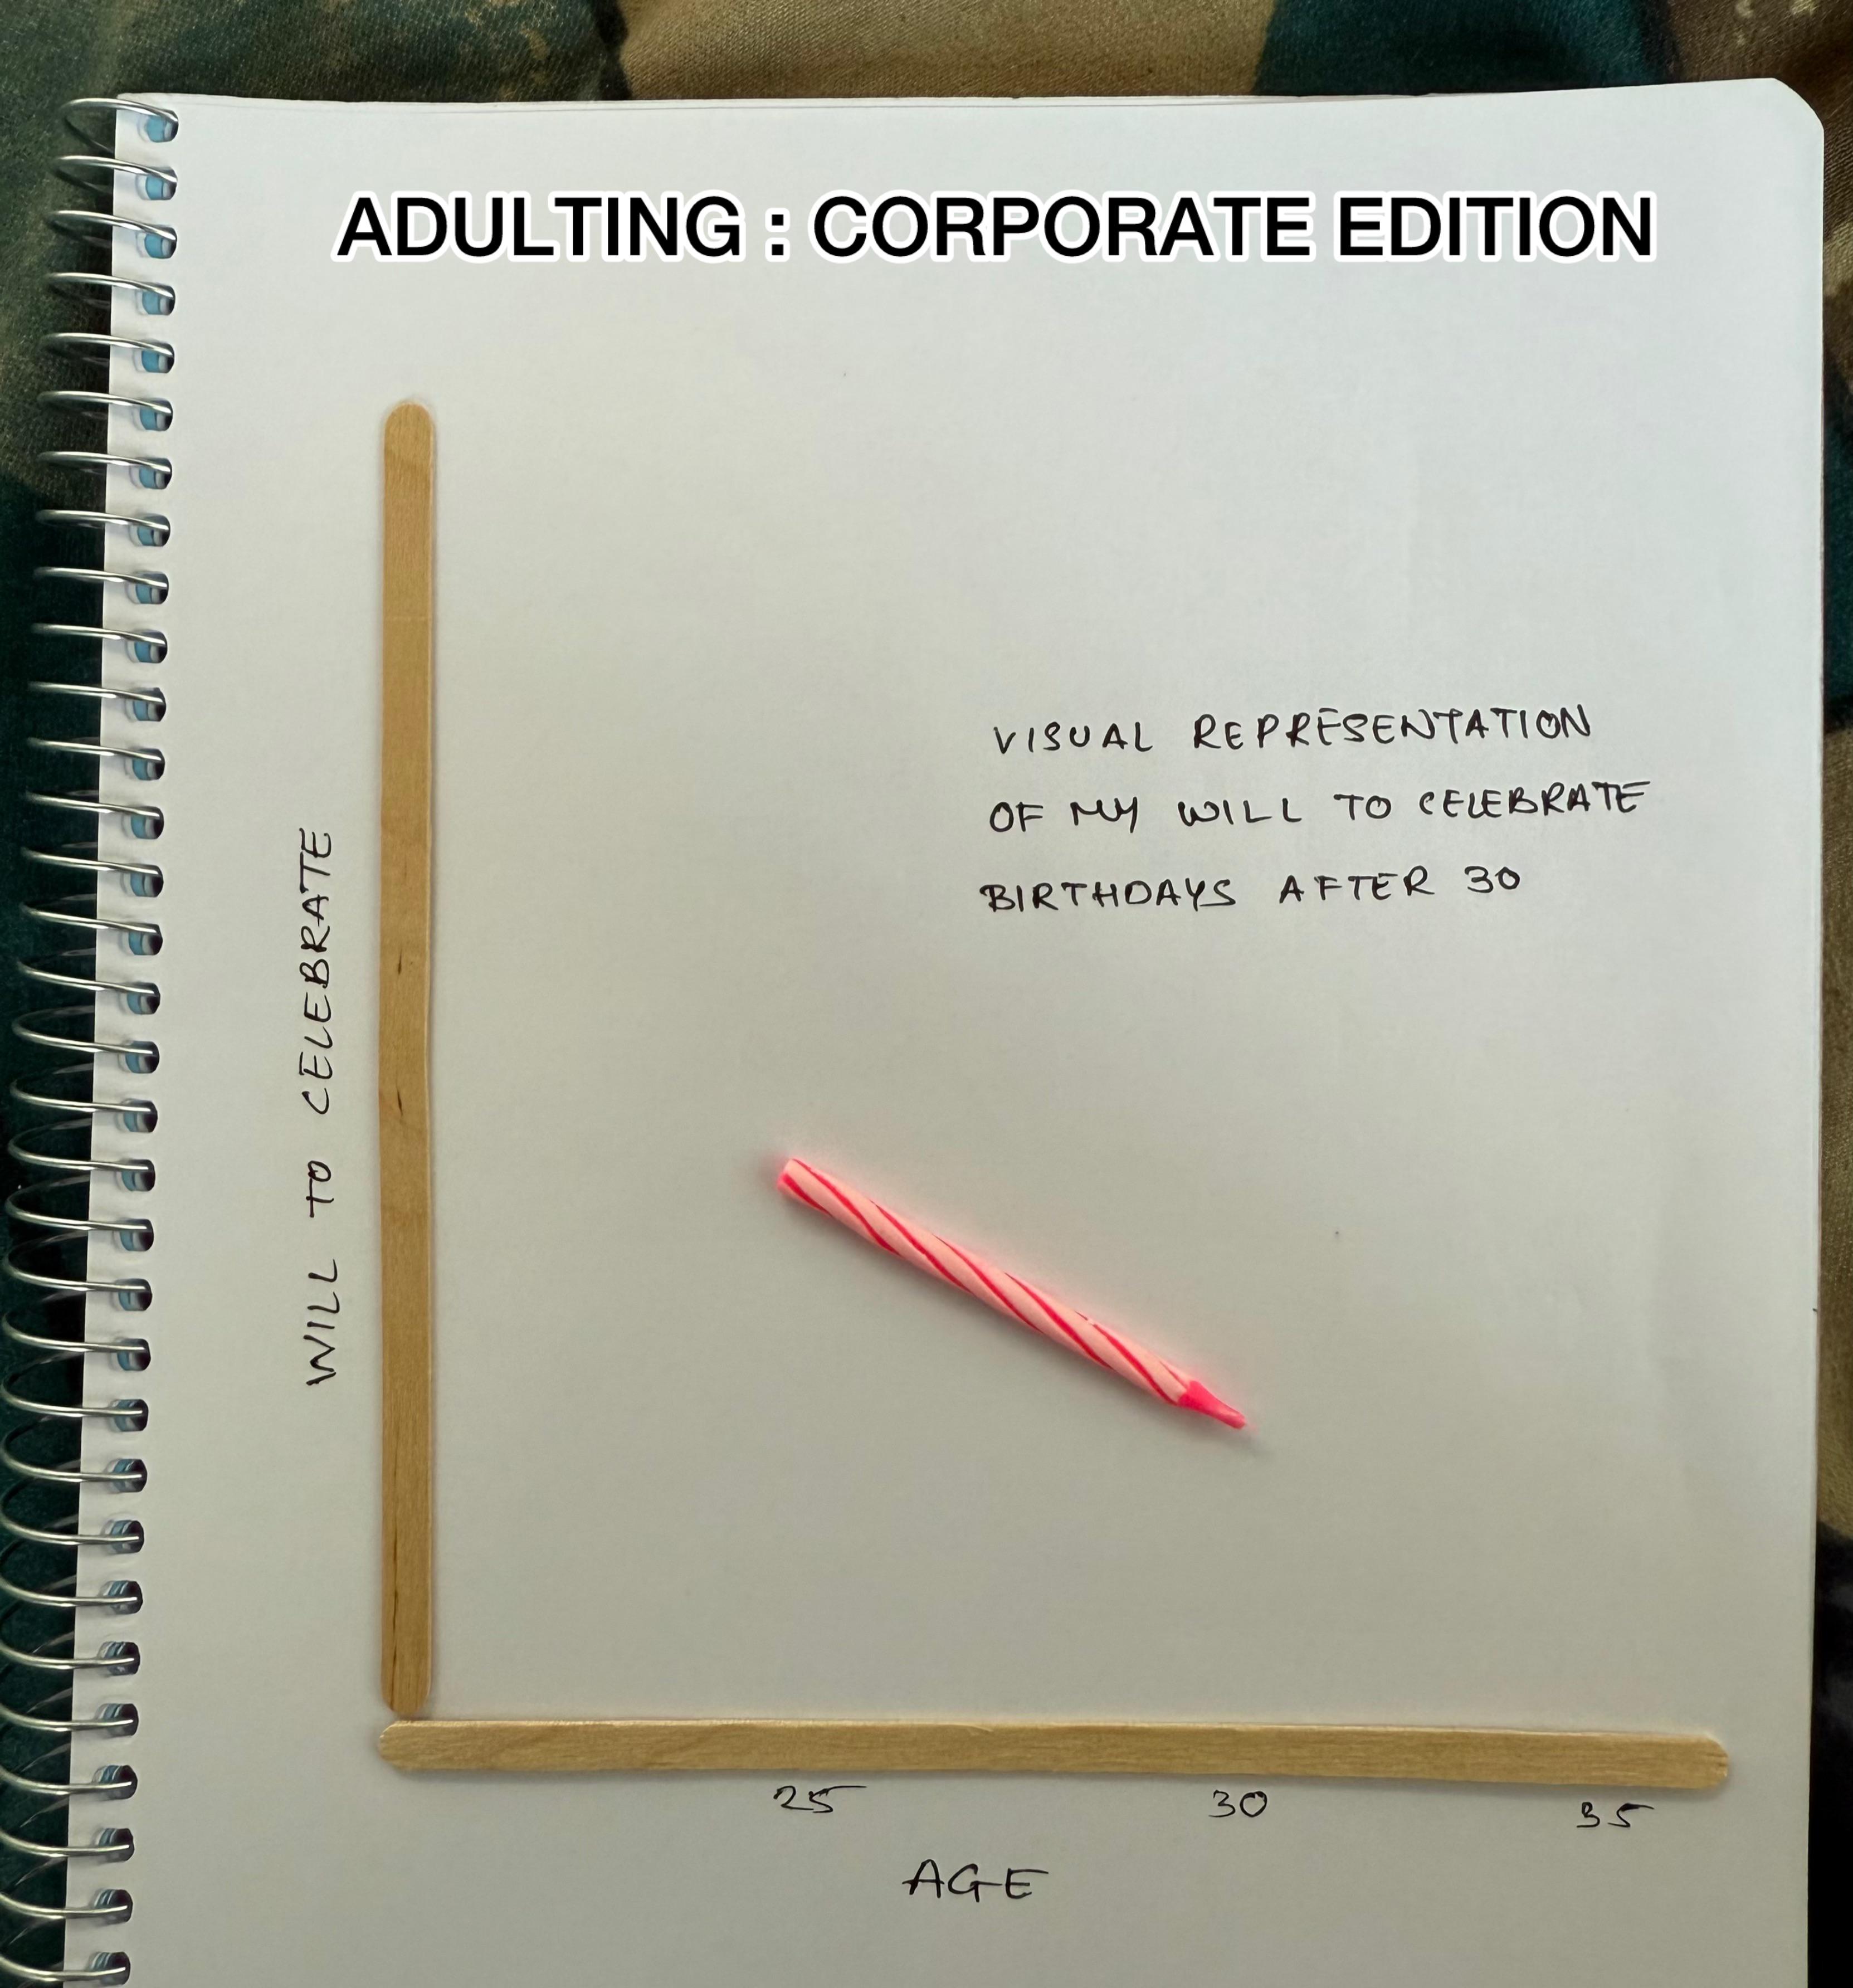 ADULTING : CORPORATE EDITION
VISUAL REPRESENTATION
OF MY WILL TO CELEBRATE
BIRTHDAYS AFTER 30
WILL TO CELEBRATE
25 30 35
AGE